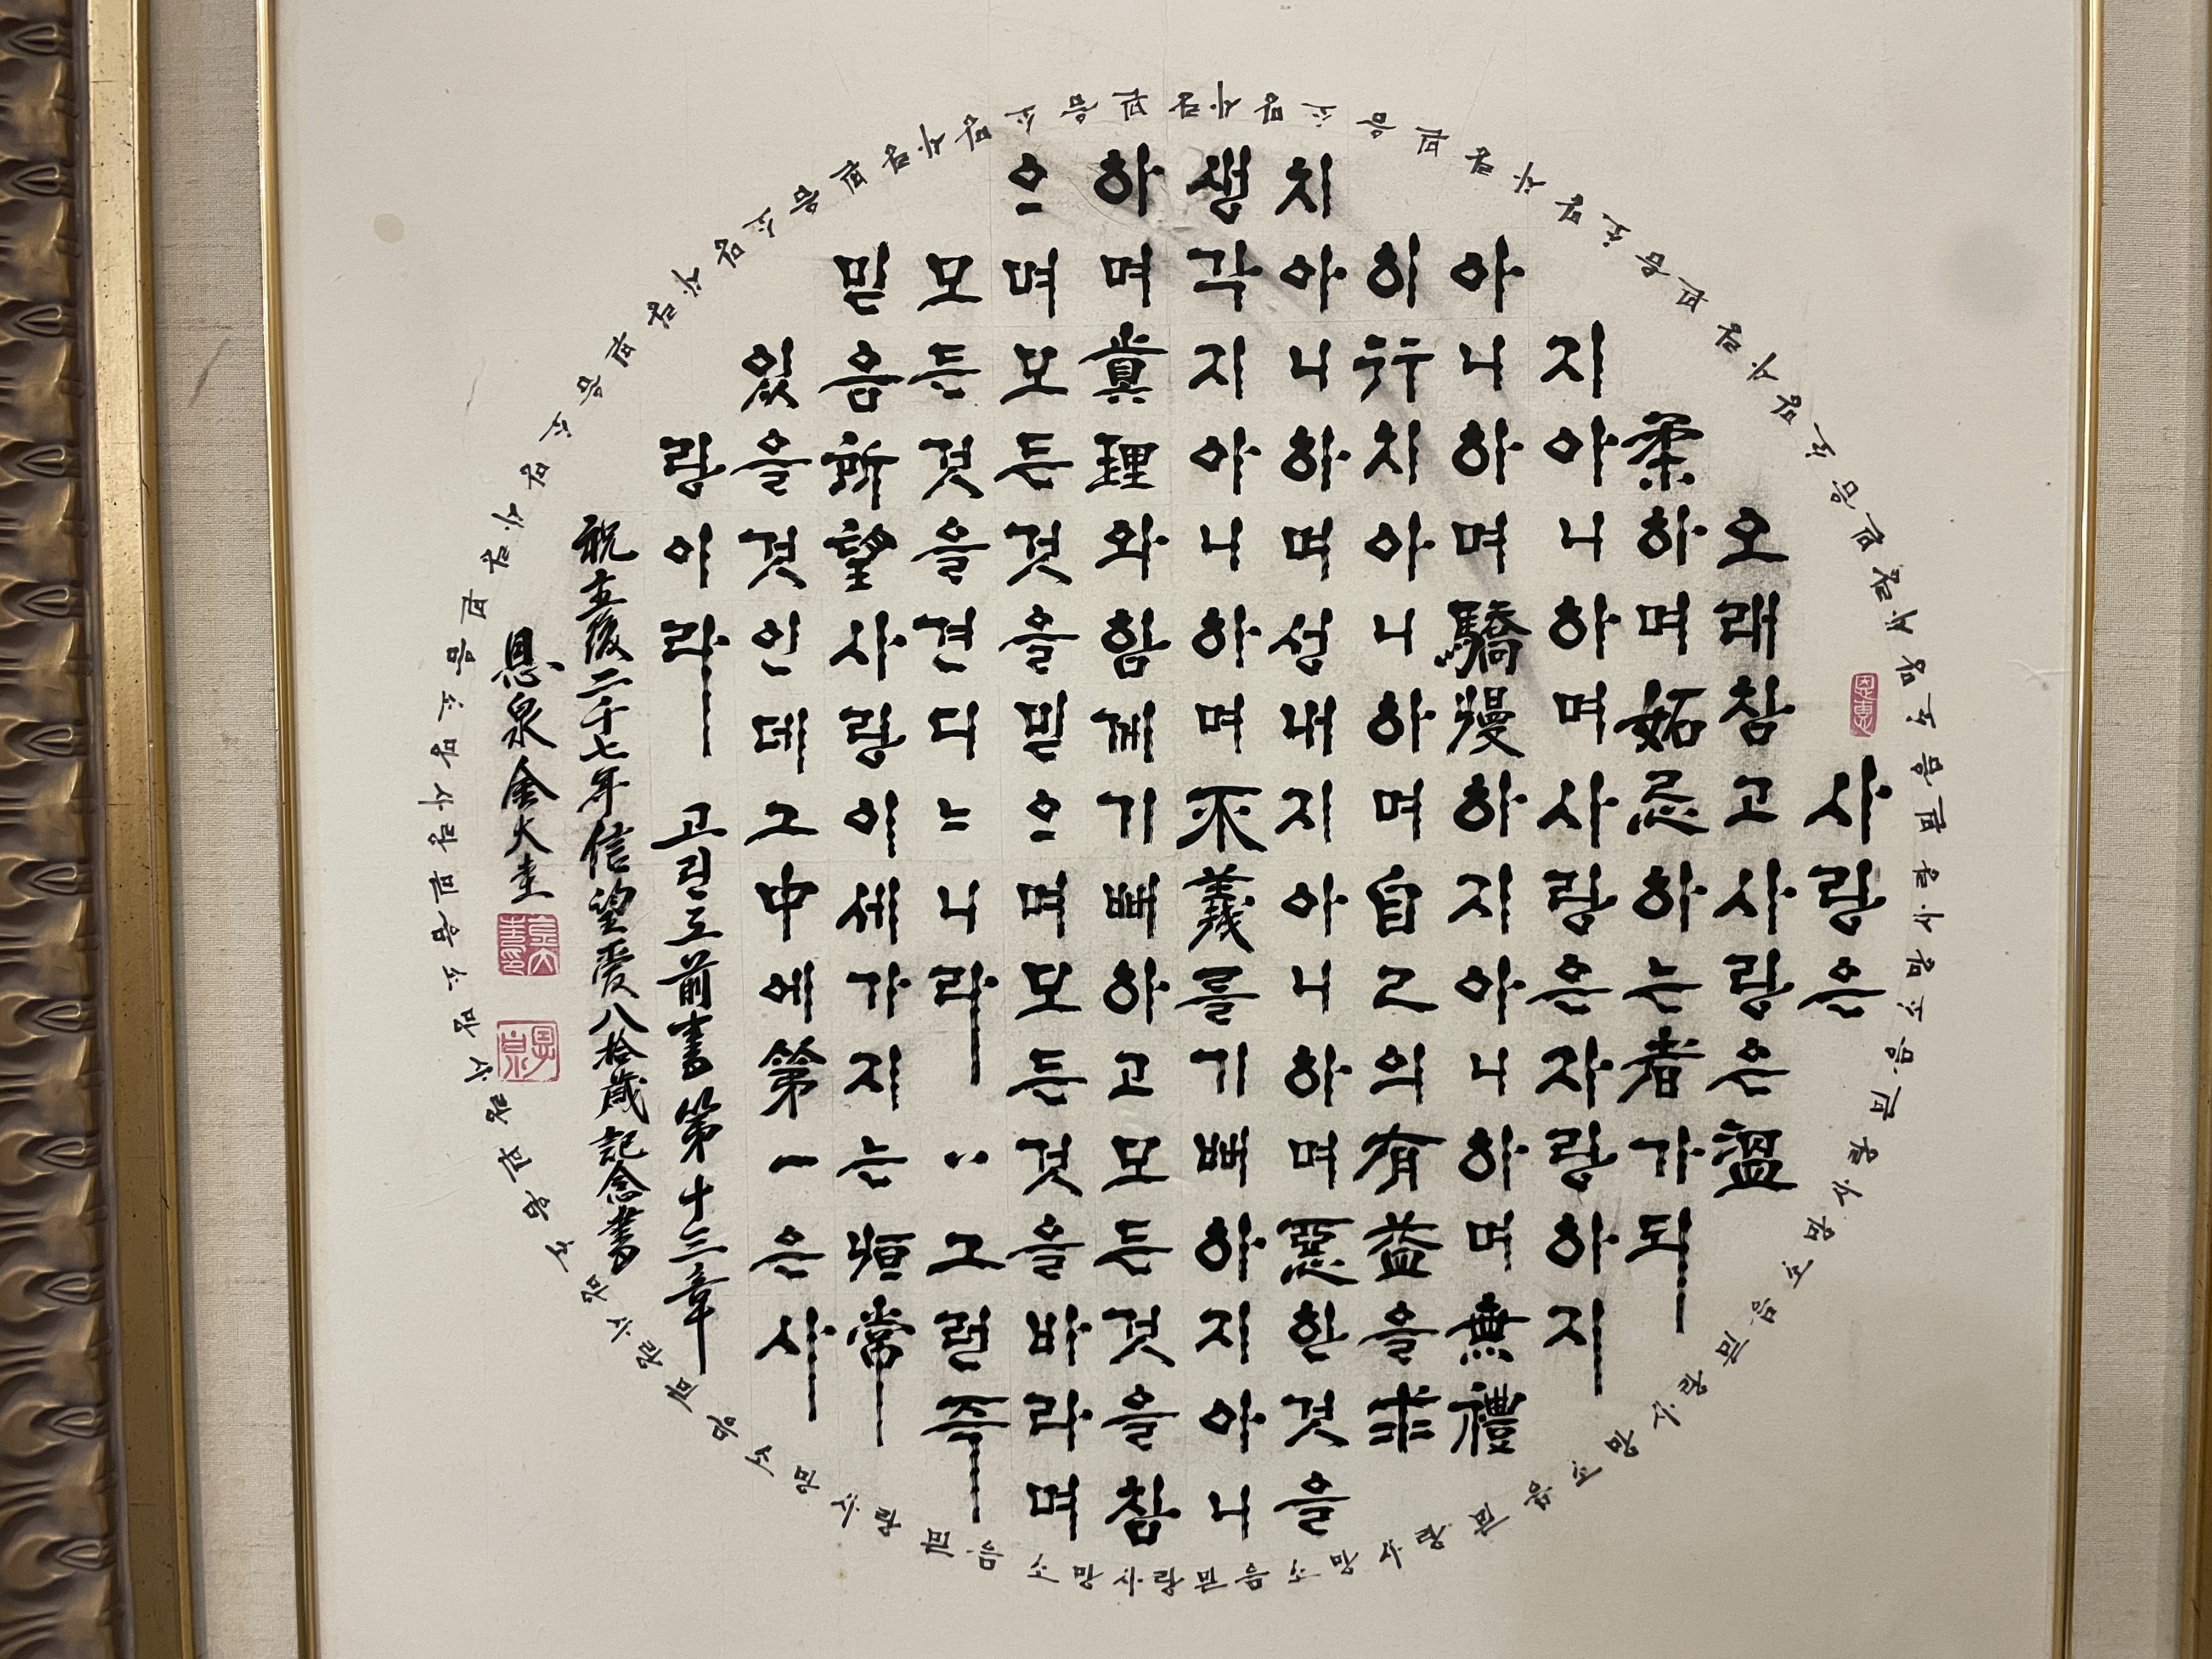 사랑은
오래참고사랑은溫
柔하며妬忌하는者가되
지아니하며사랑은자랑하지
아니하며驕慢하지아니하며無禮
히行치아니하며自己의有益을求
치아니하며성내지아니하며惡한것을
생각지아니하며不義를기뻐하지아니
하며眞理와함께기뻐하고모든것을참
으며모든것을믿으며모든것을바라며
모든것을견디느니라‥그런즉
믿음所望사랑이세가지는恒常
있을것인데그中에第一은사
랑이라 고린도前書第十三章
祝主後二千七年信望愛八拾歲記念書
恩泉金大圭
믿음소망사랑믿음소망사랑믿음소망사랑믿음소망사랑믿음소망사랑믿음소망사랑믿음소망사랑믿음소망사랑믿음소망사랑믿음소망사랑믿음소망사랑믿음소망사랑믿음소망사랑믿음소망사랑믿음소망사랑믿음소망사랑믿음소망사랑